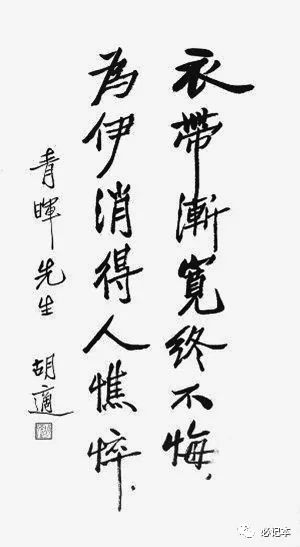 衣帶漸寬終不悔.
為伊消得人憔悴.
青暉先生
胡適
必记本